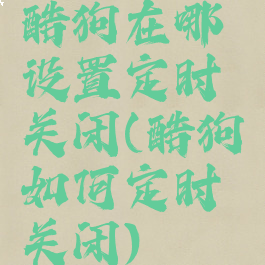 酷狗在哪
设置定时
关闭(酷狗
如何定时
关闭)